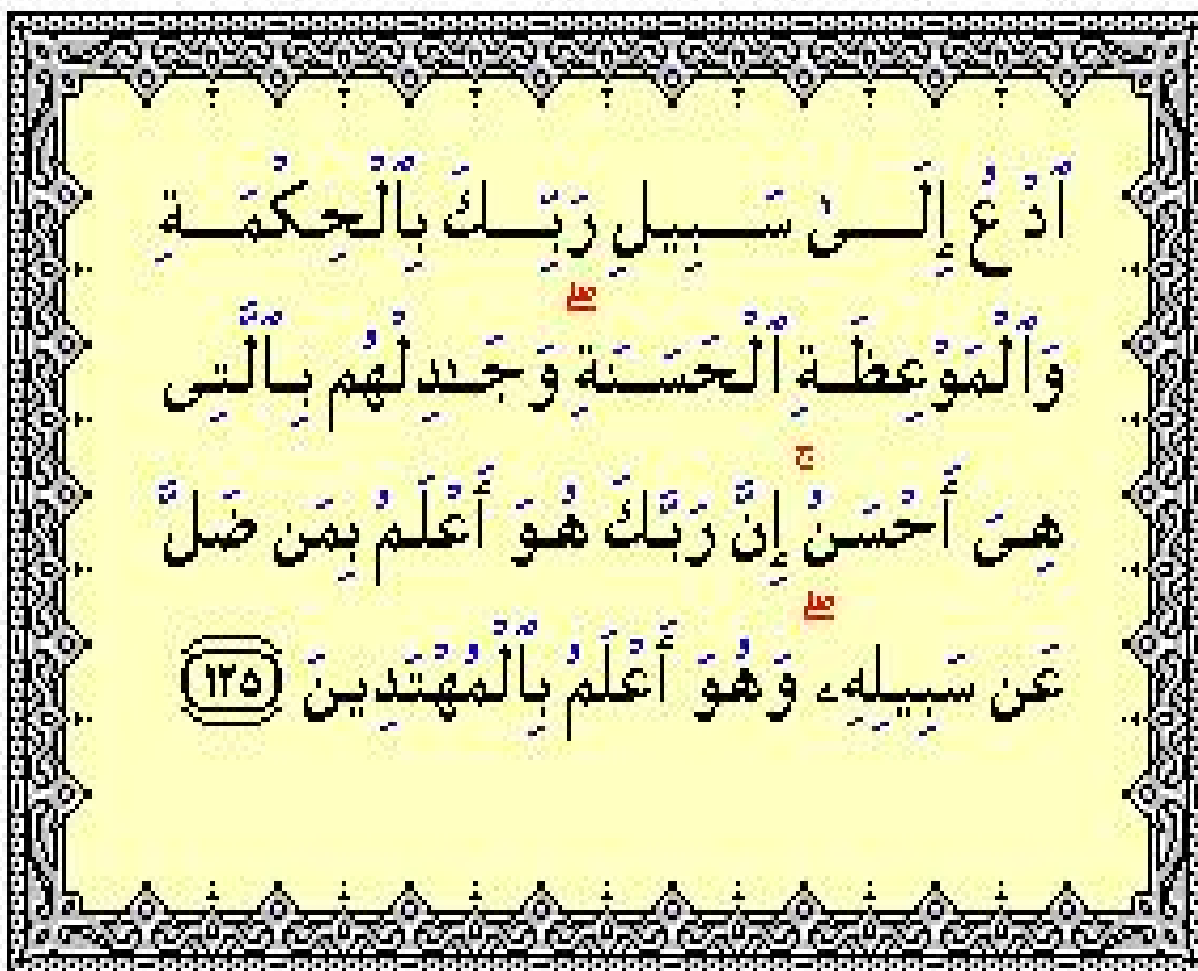 ٱدْعُ إِلَـىٰ سَـبِيلِ رَبِّـكَ بِٱلْحِكْمَـةِ
وَٱلْمَوْعِظَـةِ ٱلْحَسَـنَةِ ۖ وَجَـٰدِلْهُم بِـٱلَّتِى
هِىَ أَحْسَنُ ۚ إِنَّ رَبَّـكَ هُـوَ أَعْلَـمُ بِمَن ضَلَّ
عَن سَبِيلِهِۦ ۖ وَهُوَ أَعْلَمُ بِٱلْمُهْتَدِينَ ١٢٥